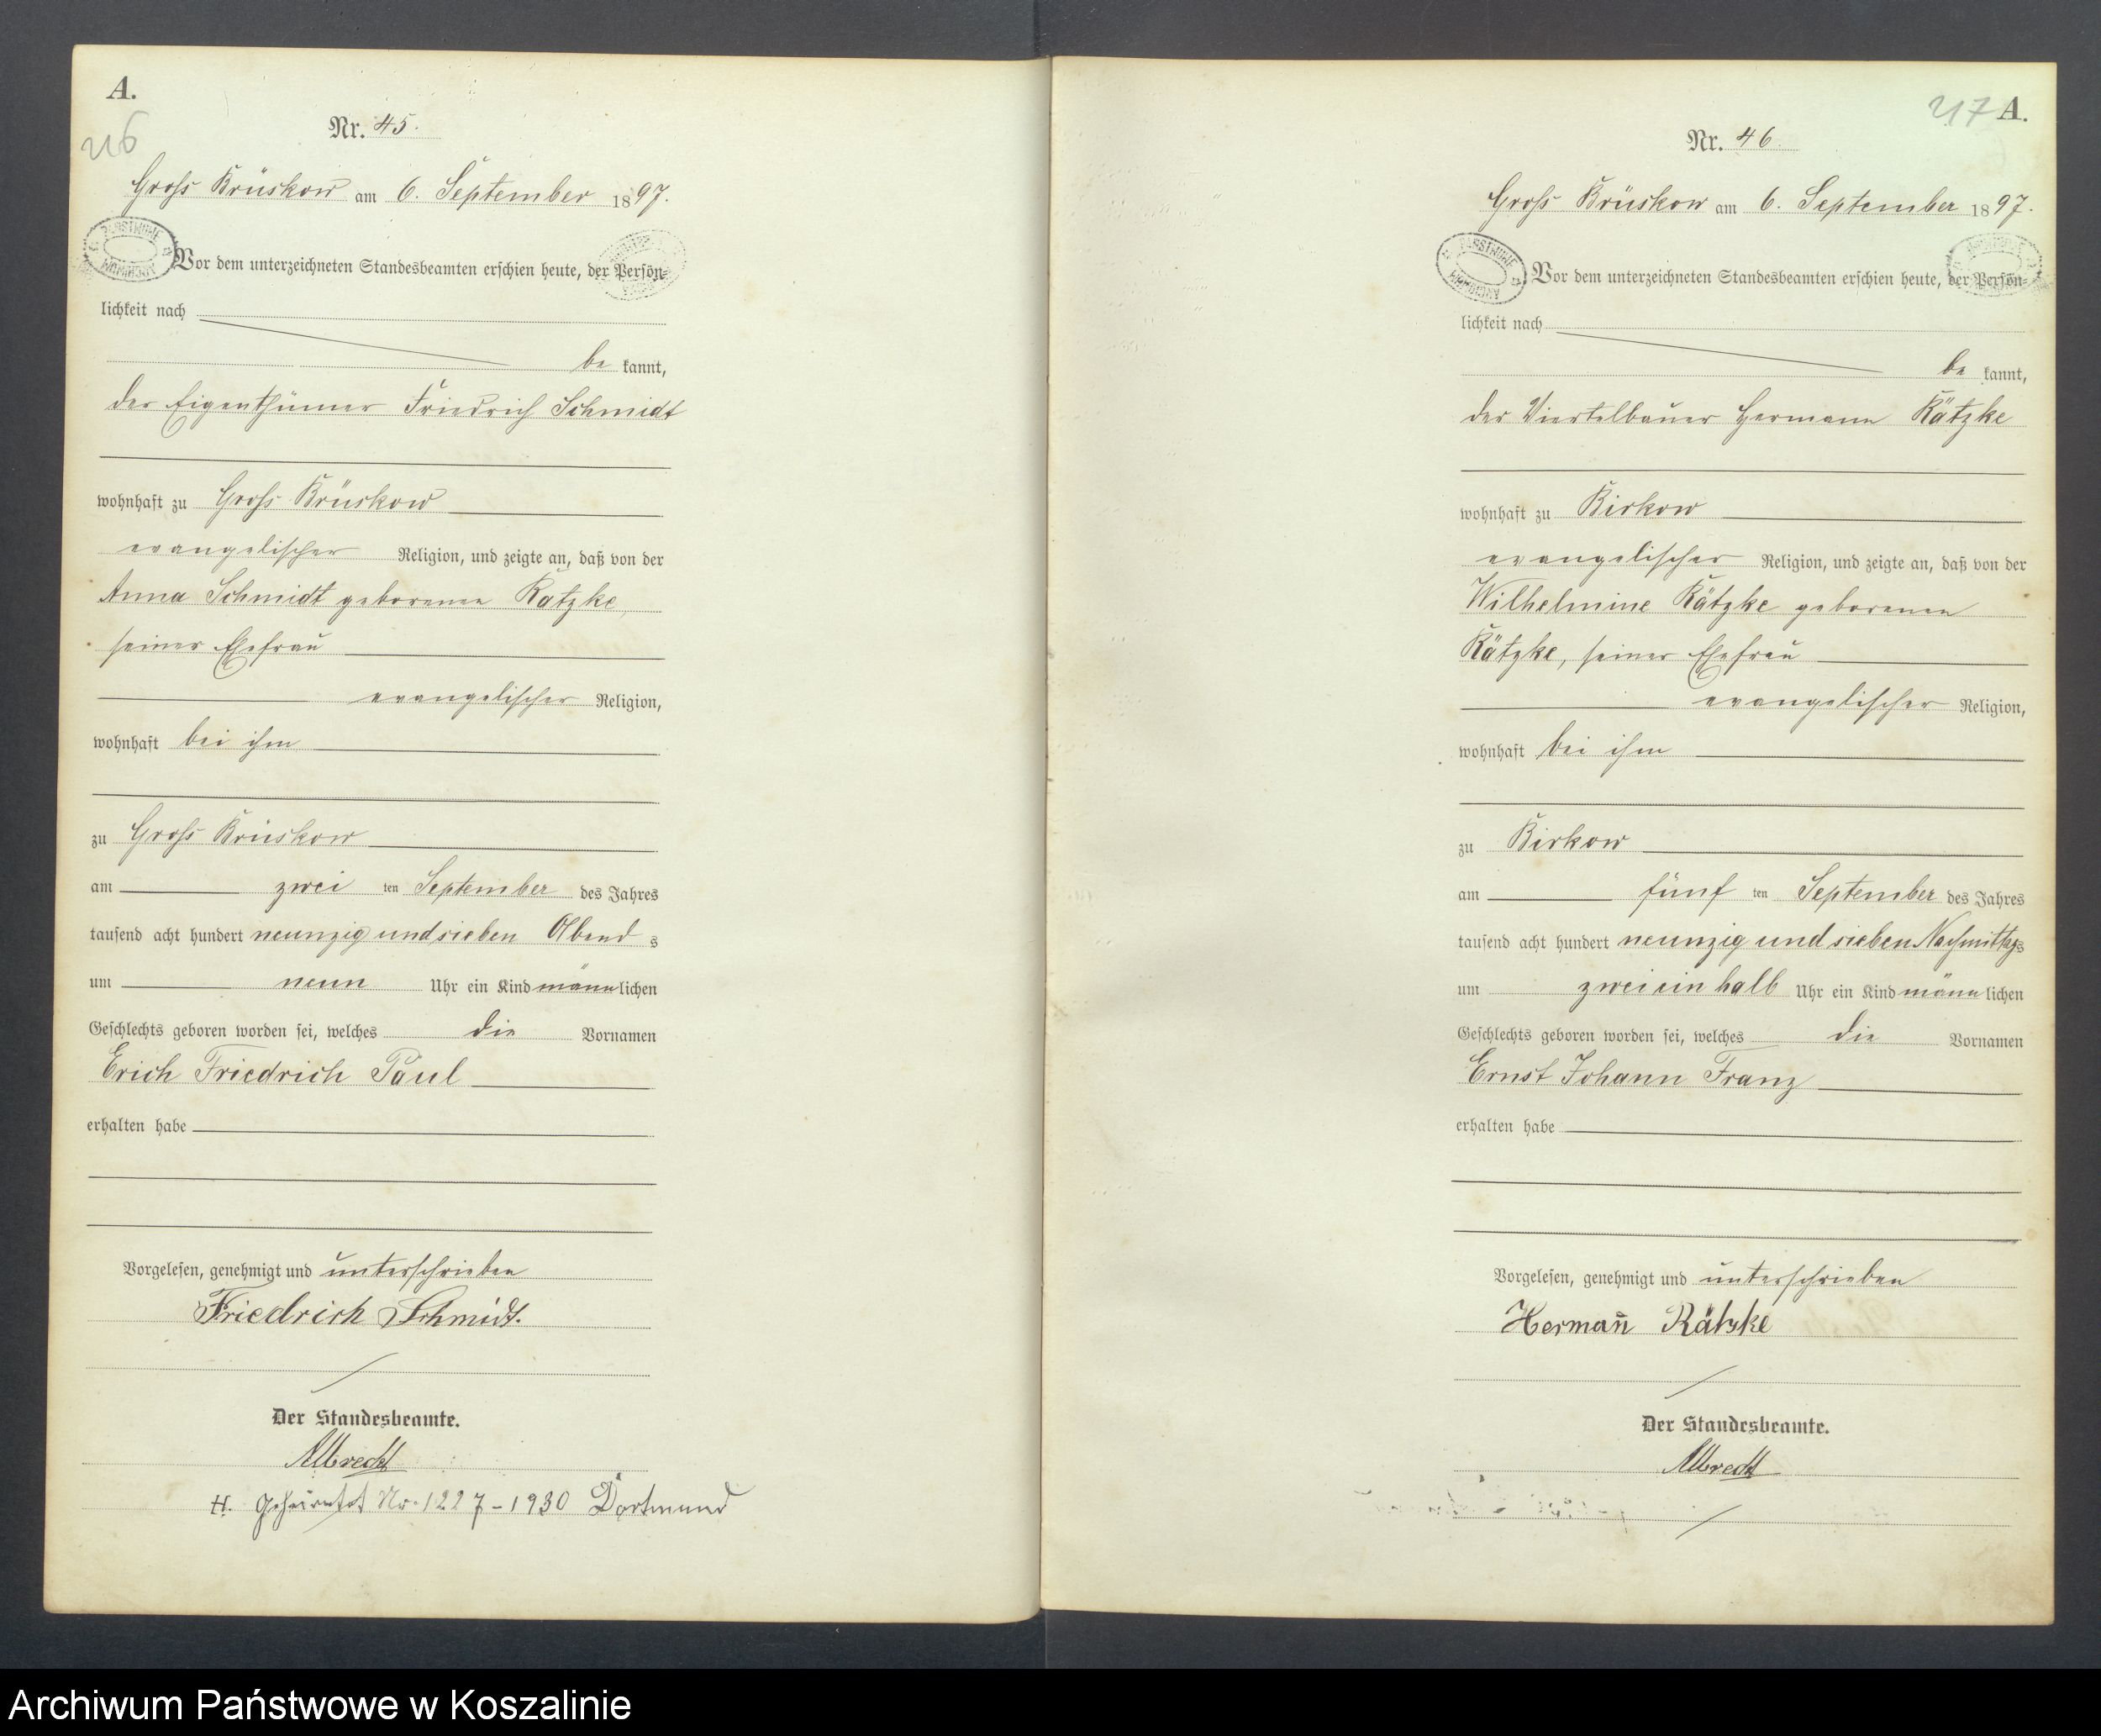 A.
216
Nr. 45.
Groß Brüskow am 6. September 1897.
Vor dem unterzeichneten Standesbeamten erschien heute, der Persön=
lichkeit nach
be kannt,
der Eigenthümer Friedrich Schmidt
wohnhaft zu Groß Brüskow
evangelischer Religion, und zeigte an, daß von der
Anna Schmidt geborenen Rätzke,
seiner Ehefrau
evangelischer Religion,
wohnhaft bei ihm
zu Groß Brüskow
am zwei ten September des Jahres
tausend acht hundert neunzig und sieben Abend s
um neun Uhr ein Kind männlichen
Geschlechts geboren worden sei, welches die Vornamen
Erich Friedrich Paul
erhalten habe
Vorgelesen, genehmigt und unterschrieben
Friedrich Schmidt.
Der Standesbeamte.
Albrecht
H. Geheiratet Nr. 1227-1930 Dortmund
217 A.
Nr. 46.
Groß Brüskow am 6. September 1897.
Vor dem unterzeichneten Standesbeamten erschien heute, der Persön=
lichkeit nach
be kannt,
der Viertelbauer Hermann Rätzke
wohnhaft zu Birkow
evangelischer Religion, und zeigte an, daß von der
Wilhelmine Rätzke geborenen
Rätzke, seiner Ehefrau
evangelischer Religion,
wohnhaft bei ihm
zu Birkow
am fünf ten September des Jahres
tausend acht hundert neunzig und sieben Nachmittags
um zwei ein halb Uhr ein Kind männlichen
Geschlechts geboren worden sei, welches die Vornamen
Ernst Johann Franz
erhalten habe
Vorgelesen, genehmigt und unterschrieben
Hermañ Rätzke
Der Standesbeamte.
Albrecht
Archiwum Państwowe w Koszalinie